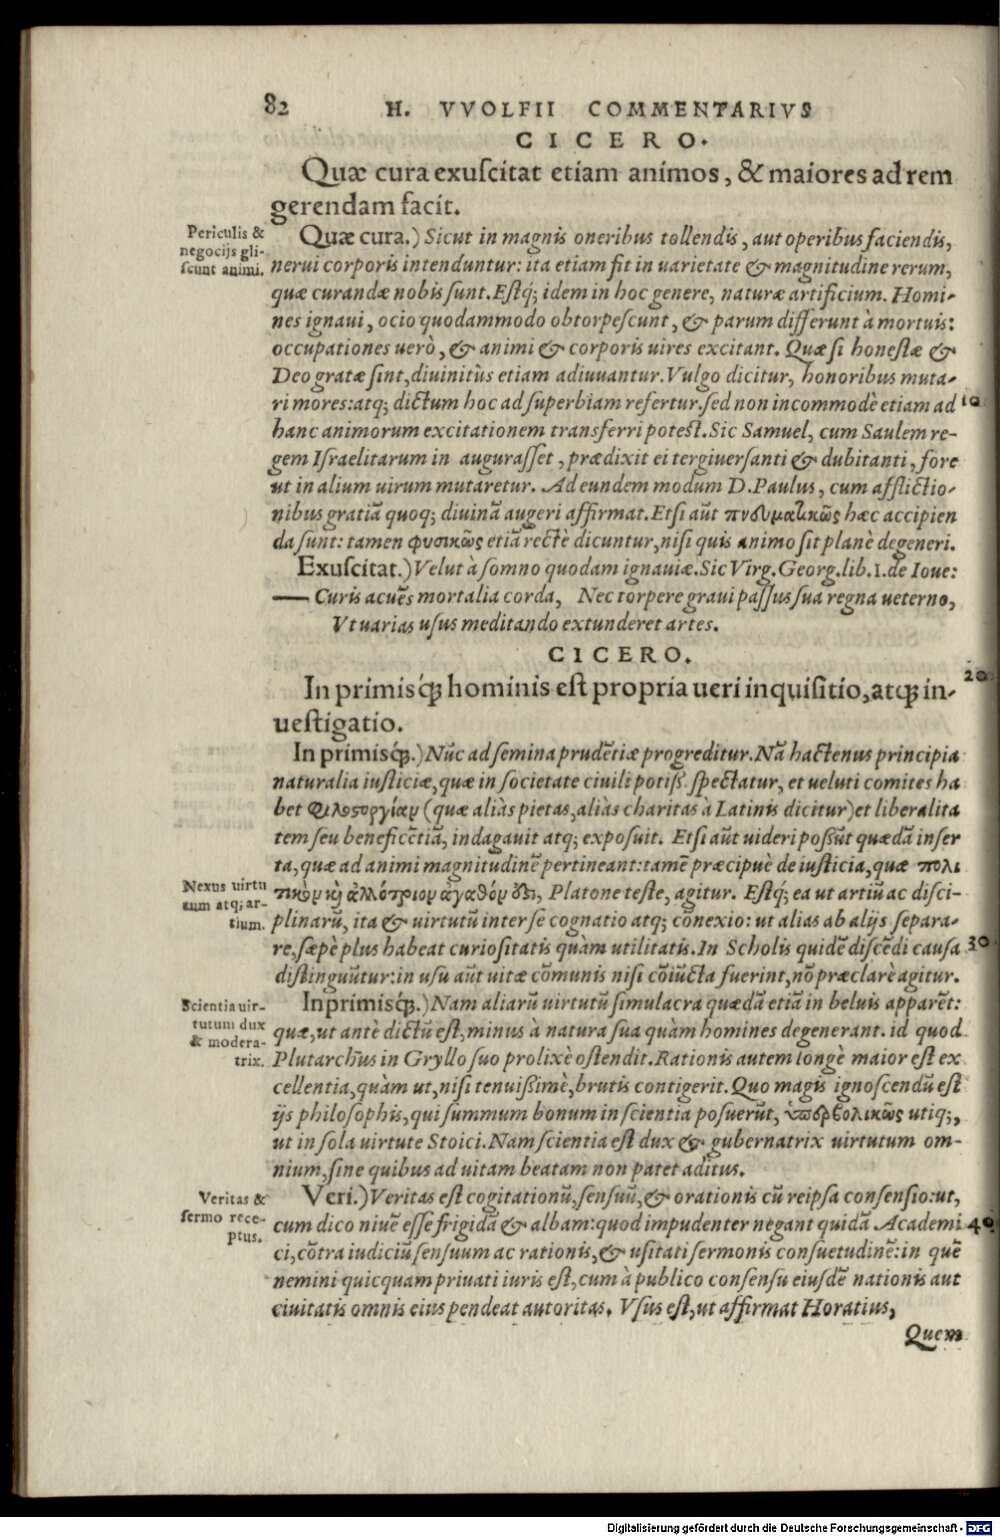 82 H. VVOLFII COMMENTARIVS
CICERO.
Quæ cura exuſcitat etiam animos, & maiores ad rem
gerendam facit.
Periculis &
negocijs gli-
ſcunt animi.
Quæ cura.) Sicut in magnis oneribus tollendis, aut operibus faciendis,
nerui corporis intenduntur: ita etiam fit in uarietate & magnitudine rerum,
quæ curandæ nobis ſunt. Eſtq; idem in hoc genere, naturæ artificium. Homi-
nes ignaui, ocio quodammodo obtorpeſcunt, & parum differunt à mortuis:
occupationes uerò, & animi & corporis uires excitant. Quæ ſi honeſtæ &
Deo gratæ ſint, diuinitùs etiam adiuuantur. Vulgo dicitur, honoribus muta-
ri mores: atq; dictum hoc ad ſuperbiam refertur. ſed non incommodè etiam ad 10
hanc animorum excitationem transferri poteſt. Sic Samuel, cum Saulem re-
gem Iſraelitarum in auguraſſet, prædixit ei tergiuerſanti & dubitanti, fore
ut in alium uirum mutaretur. Ad eundem modum D. Paulus, cum afflictio-
nibus gratiã quoq; diuinã augeri affirmat. Etſi aũt πνευματικῶς hæc accipien
da ſunt: tamen φυσικῶς etiã rectè dicuntur, niſi quis animo ſit planè degeneri.
Exuſcitat.) Velut à ſomno quodam ignauiæ. Sic Virg. Georg. lib. 1. de Ioue:
— Curis acuẽs mortalia corda, Nec torpere graui paſſus ſua regna ueterno,
Vt uarias uſus meditando extunderet artes.
CICERO.
20
In primisq́; hominis eſt propria ueri inquiſitio, atq; in-
ueſtigatio.
In primisq́;.) Nũc ad ſemina prudẽtiæ progreditur. Nã hactenus principia
naturalia iuſticiæ, quæ in ſocietate ciuili potiß. ſpectatur, et ueluti comites ha
bet φιλοστοργίαν (quæ aliàs pietas, aliàs charitas à Latinis dicitur) et liberalita
tem ſeu beneficẽtiã, indagauit atq; expoſuit. Etſi aũt uideri poßũt quædã inſer
ta, quæ ad animi magnitudinẽ pertineant: tamẽ præcipuè de iuſticia, quæ πολι
Nexus uirtu
tum atq; ar-
tium.
τικὸν κὴ ἀλλότριον ἀγαθόν ὅτι, Platone teſte, agitur. Eſtq́; ea ut artiũ ac diſci-
plinarũ, ita & uirtutũ inter ſe cognatio atq; cõnexio: ut alias ab alijs ſepara-
re, ſæpè plus habeat curioſitatis quàm utilitatis. In Scholis quidẽ diſcẽdi cauſa 30
diſtinguũtur: in uſu aũt uitæ cõmunis niſi cõiũcta fuerint, nõ præclarè agitur.
Scientia uir-
tutum dux
& modera-
trix.
In primisq́;.) Nam aliarũ uirtutũ ſimulacra quædã etiã in beluis apparẽt:
quæ, ut antè dictũ eſt, minus à natura ſua quàm homines degenerant. id quod
Plutarchus in Gryllo ſuo prolixè oſtendit. Rationis autem longè maior eſt ex
cellentia, quàm ut, niſi tenuißimè, brutis contigerit. Quo magis ignoſcendũ eſt
ijs philoſophis, qui ſummum bonum in ſcientia poſuerũt, ὑπερβολικῶς utiq;,
ut in ſola uirtute Stoici. Nam ſcientia eſt dux & gubernatrix uirtutum om-
nium, ſine quibus ad uitam beatam non patet aditus.
Veritas &
ſermo rece-
ptus.
Veri.) Veritas eſt cogitationũ, ſenſuũ, & orationis cũ reipſa conſenſio: ut,
cum dico niuẽ eſſe frigidã & albam: quod impudenter negant quidã Academi 40
ci, cõtra iudiciũ ſenſuum ac rationis, & uſitati ſermonis conſuetudinẽ: in quẽ
nemini quicquam priuati iuris eſt, cum à publico conſenſu eiuſdẽ nationis aut
ciuitatis omnis eius pendeat autoritas. Vſus eſt, ut affirmat Horatius,
Quem
Digitalisierung gefördert durch die Deutsche Forschungsgemeinschaft - DFG